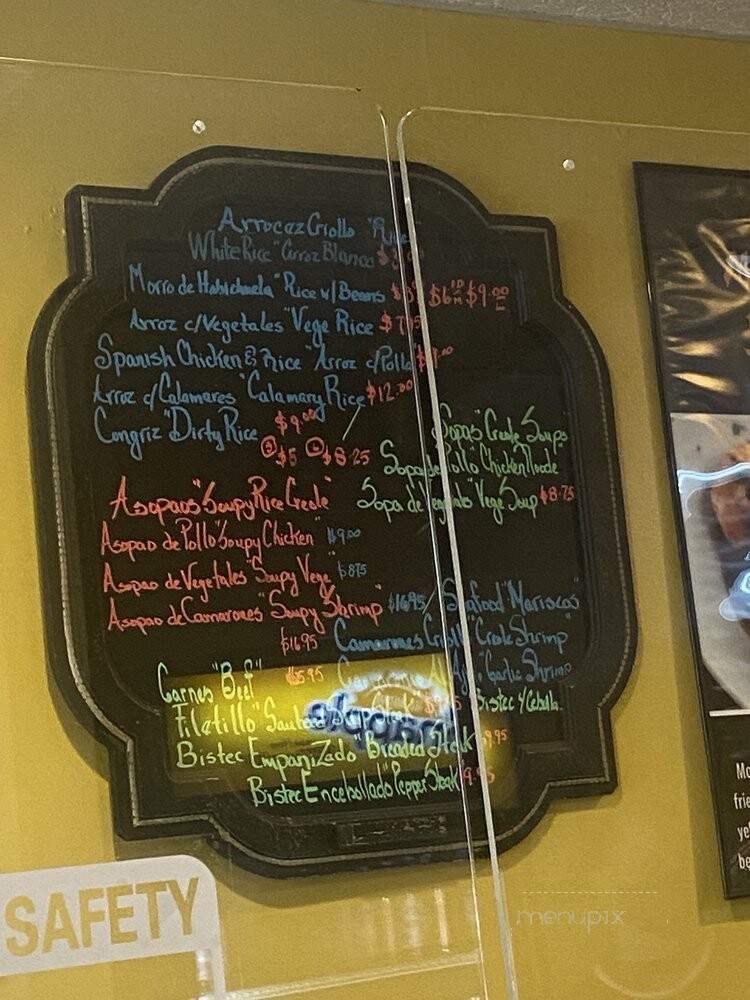 Arrocez Criollo "Rice"
White Rice "Arroz Blanco
Morro de Habichuela "Rice w/ Beans $6 $9.00
Arroz c/Vegetales "Vege Rice
Spanish Chicken & Rice "Arroz c/Pollo
Arroz c/Calamares "Calamary Rice $12.00
Congriz "Dirty Rice $9.00
$5 $8.25
Sopas "Creole Soups
Sopa de Pollo "Chicken Noodle"
Sopa de Vegetales "Vege Soup $8.75
Asopaos "Soupy Rice Creole"
Asopao de Pollo "Soupy Chicken" $9.00
Asopao de Vegetales "Soupy Vege" $8.75
Asopao de Camarones "Soupy Shrimp" $16.95
Seafood "Mariscos"
$16.95
Camarones Criollo "Creole Shrimp"
"Garlic Shrimp
Carnes "Beef"
Filetillo Bistec Y Cebolla.
Bistec Empanizado Breaded Steak
Bistec Encebollado "Pepper Steak
SAFETY
menupix